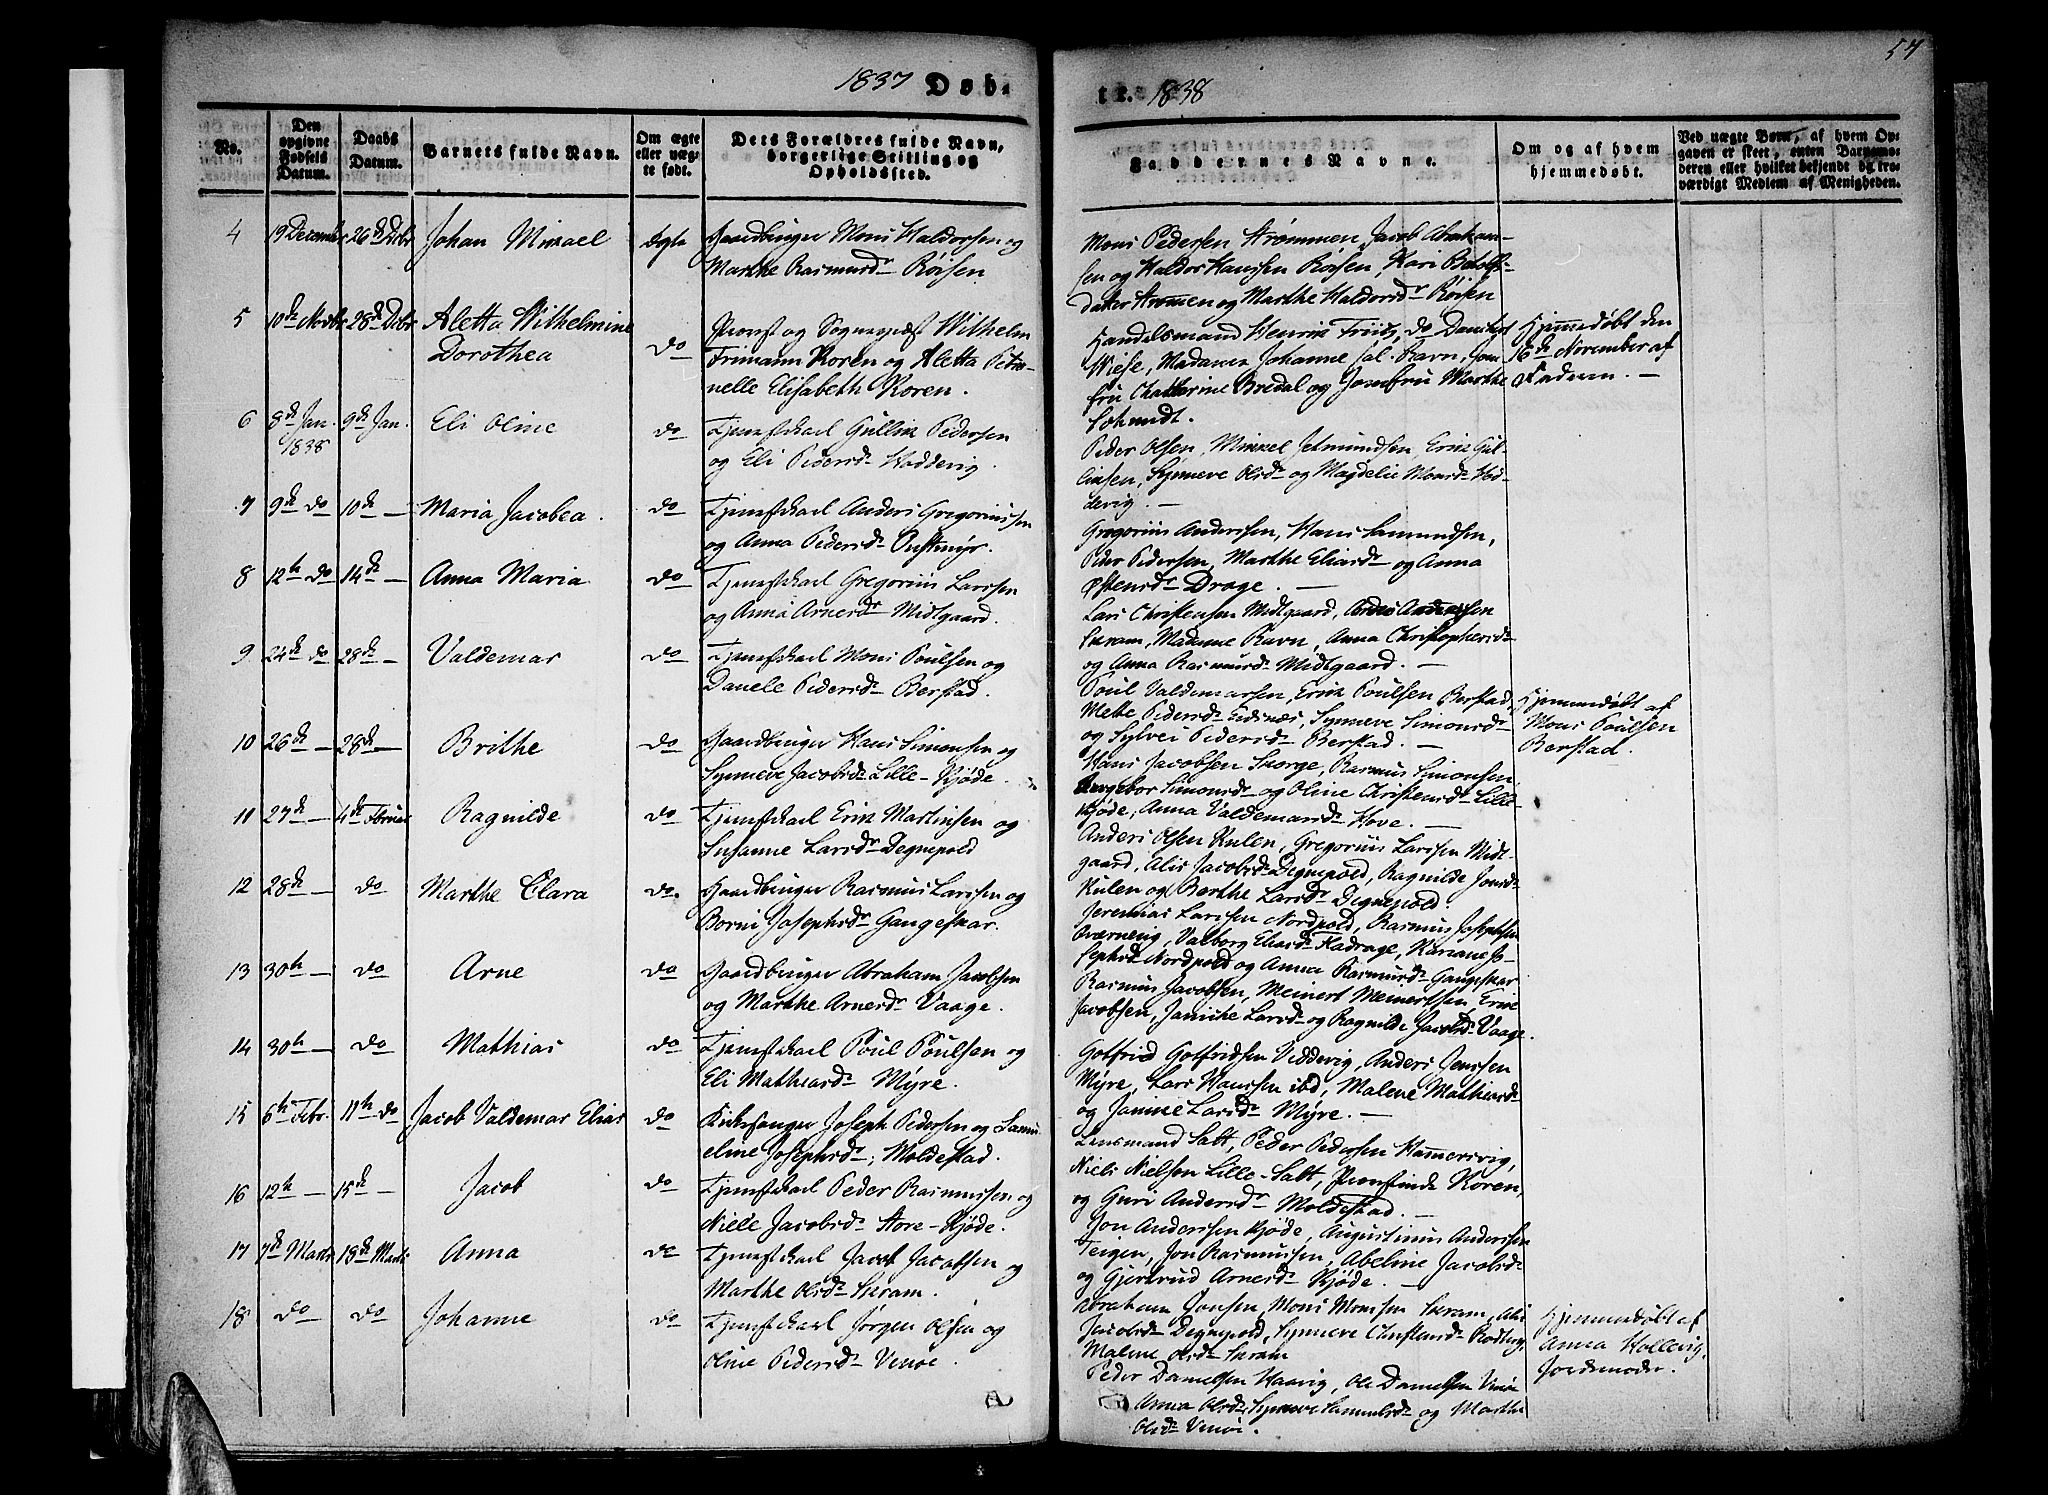 57
1837 Døb
te. 1838
No.
Den opgivne Fødsels Datum.
Daabs Datum.
Barnets fulde Navn.
Om ægte eller uægte født.
Dets Forældres fulde Navn, borgerlige Stilling og Opholdssted.
Faddernes Navne.
Om og af hvem hjemmedøbt.
Ved uægte Børn, af hvem Opgaven er skeet, enten Barnemoderen eller hvilket bekjendt og troværdigt Medlem af Menigheden.
4 19 December 26de Decbr Johan Mikael Ægte Gaardbruger Mons Haldorsen og
Marthe Rasmusdr Röisen
Mons Pedersen Strømmen, Jacob Abraham-
sen og Haldor Hanssen Röisen, Kari Botolfs-
datter Strømmen og Marthe Haldorsdr Röisen
5 10de Novbr 28de Decbr Aletta Wilhelmine
Dorothea
do
Provst og Sognepræst Wilhelm
Frimann Koren og Aletta Petro-
nelle Elisabeth Koren.
Handelsmand Henrik Friis, do Danckert
Wiese, Madamen Johanne sal. Ravn, Jom-
fru Chatterine Bredal og Jomfru Marthe
Schmidt.
Hjemmedøbt den
16de November af
Faderen. —
6 8de Jan. 1838 9de Jan. Eli Oline do Tjenstekarl Gullik Pedersen
og Eli Pedersdr Haddevig.
Peder Olsen, Mikkel Jetmundsen, Erik Gul-
liksen, Synneve Olsdr og Magdeli Monsdr Had-
devig. —
7 9de do 10de — Maria Jacobea. do Tjenstekarl Anders Gregoriussen
og Anna Pedersdr Østmyr.
Gregorius Anderssen, Hans Samundsen,
Peder Pedersen, Marthe Eliasdr og Anna
Østensdr Drage. —
8 12te do 14de — Anna Maria do Tjenstekarl Gregorius Larssen
og Anna Arnesdr Midtgaard.
Lars Christensen Midtgaard, Anderssen
Skram, Madame Ravn, Anna Christophersdr
og Anna Rasmusdr Midtgaard. —
9 24de do 28de — Valdemar do Tjenstekarl Mons Poulsen og
Danele Pedersdr Berstad.
Poul Valdemarsen, Erik Poulsen Berstad,
Mette Pedersdr Eidsnæs, Synneve Simonsdr
og Sylvei Pedersdr Berstad. —
Hjemmedøbt af
Mons Poulsen
Berstad.
10 26de — 28de — Brithe do Gaardbruger Hans Simonsen og
Synneve Jacobsdr Lille-Kjøde.
Hans Jacobsen Skorge, Rasmus Simonsen
Ingebor Simonsdr og Oline Christensdr Lille-
Kjøde, Anna Valdemarsdr Hove. —
11 27de — 4de Februar Ragnilde do Tjenstekarl Erik Martinsen og
Susanne Larsdr Degnepold
Anders Olsen Kulen, Gregorius Larssen Midt-
gaard, Alis Jacobsdr Degnepold, Ragnilde Jonsdr
Kulen og Berthe Larsdr Degnepold.
12 28de — do Marthe Clara do Gaardbruger Rasmus Larssen og
Borni Josephsdr Gangeskar.
Jeremias Larssen Nordpold, Rasmus Josephsen
Qværnevig, Valborg Eliasdr Fladrage, Kariane Jo-
sephsdr Nordpold og Anna Rasmusdr Gangeskar
13 30te — do Arne do Gaardbruger Abraham Jacobsen
og Marthe Arnesdr Vaage.
Rasmus Jacobsen, Meinert Meinertsen Erne
Jacobsen, Janike Larsdr og Ragnilde Jacobsdr Vaage.
14 30te — do Mathias do Tjenstekarl Poul Poulsen og
Eli Mathiasdr Myre.
Gotfried Gotfriedsen Veddevig, Anders Jenssen
Myre, Lars Hanssen ibd, Malene Mathiasdr
og Janine Larsdr Myre. —
15 6te Febr. 11te do Jacob Valdemar Elias do Kirkesanger Joseph Pedersen og Samu-
eline Josephsdr; Moldestad.
Lensmand Salt, Peder Pedersen Hammersvig,
Niels Nielsen Lille-Salt, Provstinde Koren,
og Guri Andersdr Moldestad. —
16 12te — 15de — Jacob do Tjenstekarl Peder Rasmussen og
Niele Jacobsdr Store-Kjøde.
Jon Anderssen Kjøde, Augustinus Anderssen
Teigen, Jon Rasmussen, Abeline Jacobsdr
og Gjertrud Arnesdr Kjøde. —
17 7de Marts 18de Marts Anna do Tjenstekarl Jacob Jacobsen og
Marthe Olsdr Skram.
Abraham Jonsen, Mons Monssen Skram, Alis
Jacobsdr Degnepold, Synneve Christiansdr Rødberg,
Malene Olsdr Skram
18 do do Johanne do Tjenstekarl Jørgen Olsen og
Oline Pedersdr Venøe.
Peder Danielsen Haavig, Ole Danielsen Venøe
Anna Olsdr, Synneve Samuelsdr og Marthe
Olsdr Venøe.
Hjemmedøbt af
Anna Hollevig,
Jordemoder.